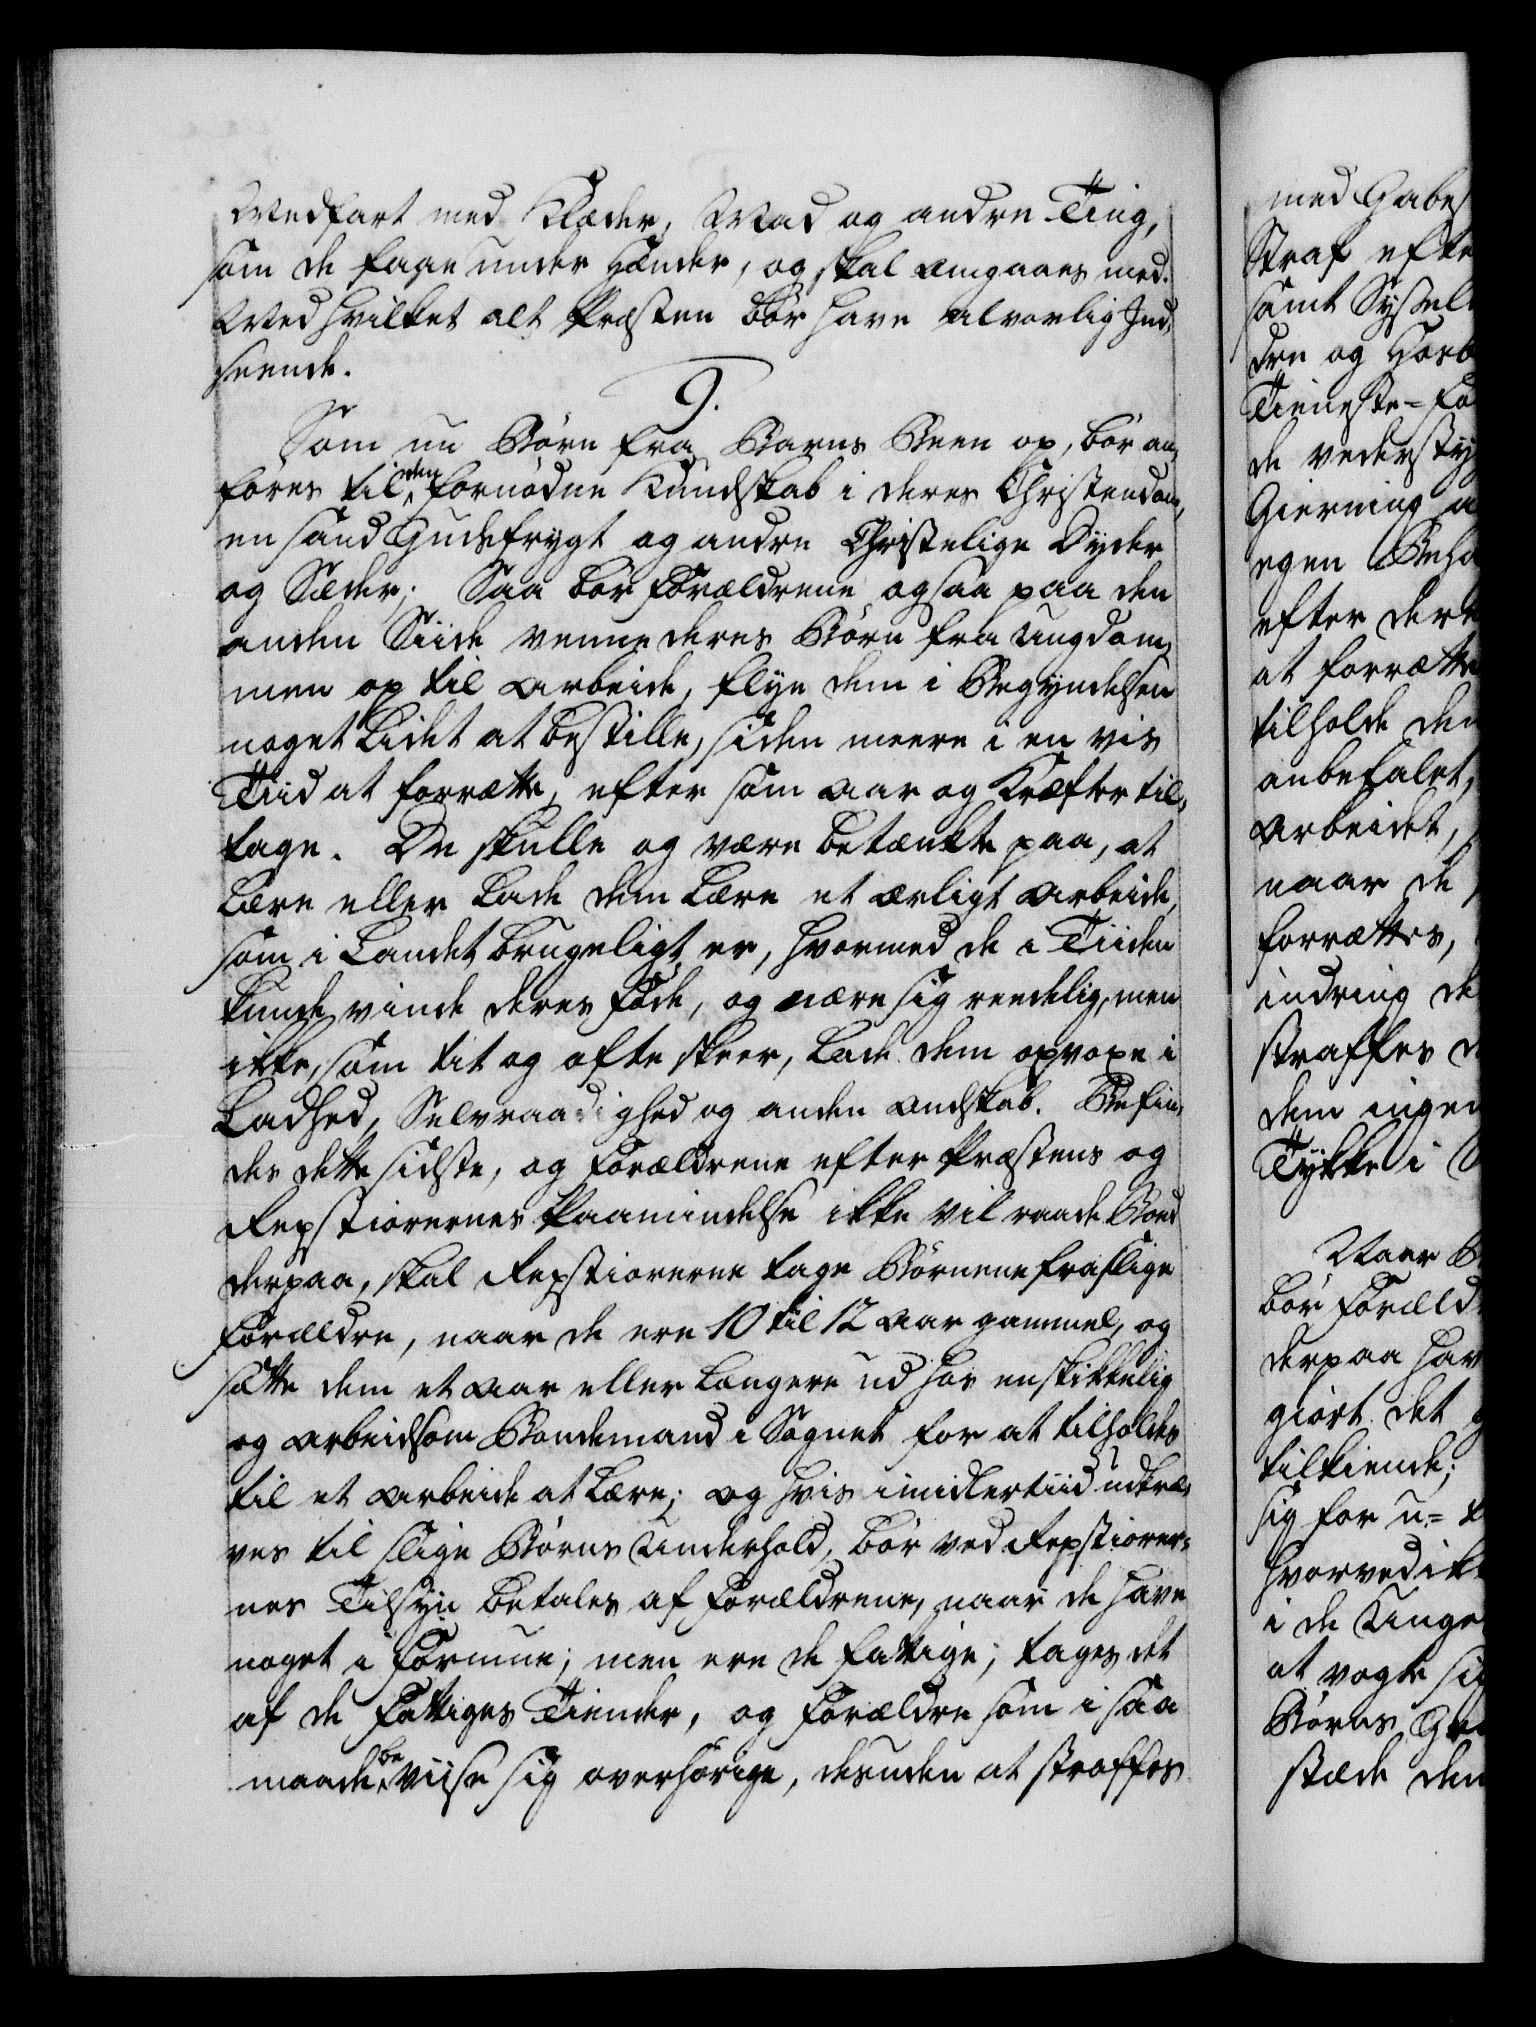 Medfart med Klæder, Mad og andre Ting,
som de faae under Hænder, og skal omgaaes med.
Med hvilket alt Præsten bør have alvorlig Ind-
seende.
9.
Som nu Børn fra Barns Been op, bør an-
føres til den fornødne Kundskab i deres Christendom,
en sand Gudsfrygt og andre Christelige Dyder
og Sæder; Saa bør Forældrene ogsaa paa den
anden Siide venne deres Børn fra Ungdom-
men op til Arbeide, flye dem i Begyndelsen
noget Lidet at bestille, siden meere i en vis
Tiid at forrætte, efter som Aar og Kræfter til-
tage. De skulle og være betænkte paa, at
Lære eller Lade dem Lære et ærligt Arbeide,
som i Landet brugeligt er, hvormed de i Tiiden
kunde vinde deres Føde, og nære sig reedelig, men
ikke, som tit og ofte skeer, Lade dem opvoxe i
Ladhed, Selvraadighed og anden Ondskab. Befin-
des dette sidste, og Forældrene efter Præstens og
Repstiorernes Paamindelse ikke vil raade Bood
derpaa, skal Repstiorerne tage Børnene fra slige
Forældre, naar de ere 10 til 12 Aar gammel, og
sætte dem et Aar eller Længere ud hos en skikkelig
og arbeidsom Bondemand i Sognet for at tilholdes
til et Arbeide at Lære; og hvis imidlertiid udkræ-
ves til slige Børns Underhold, bør ved Repstiorer-
nes Tilsyn betales af Forældrene, naar de have
noget i Formue; men ere de fattige, tages det
af de Fattiges Tiender, og Forældre som i saa
maade beviise sig overhørige, desuden at straffes
med Gabes
Straf efte
samt Syssel
dre og Hosb
Tieneste-Fo
de vederstyg
Gierning
egen Beho
efter dere
at forrætte
tilholde dem
anbefalet,
Arbeidet,
naar de
forrættes,
indring de
straffes
dem ingen
Tykke i
Naar B
bør Foræld
derpaa hav
giort det
tilkiende;
sig for u-
hvorved ik
i de Unge
at vogte sig
Børns
stæde dem